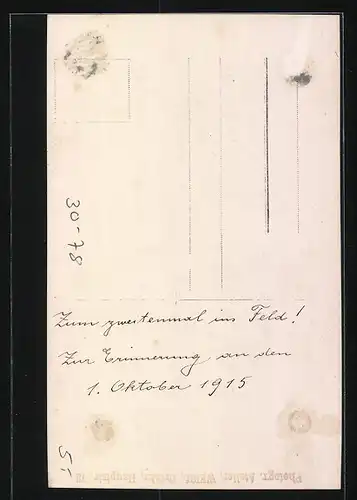 Zum zweitenmal ins Feld!
Zur Erinnerung an den
1. Oktober 1915
30-78
5.-
Photogr. Atelier